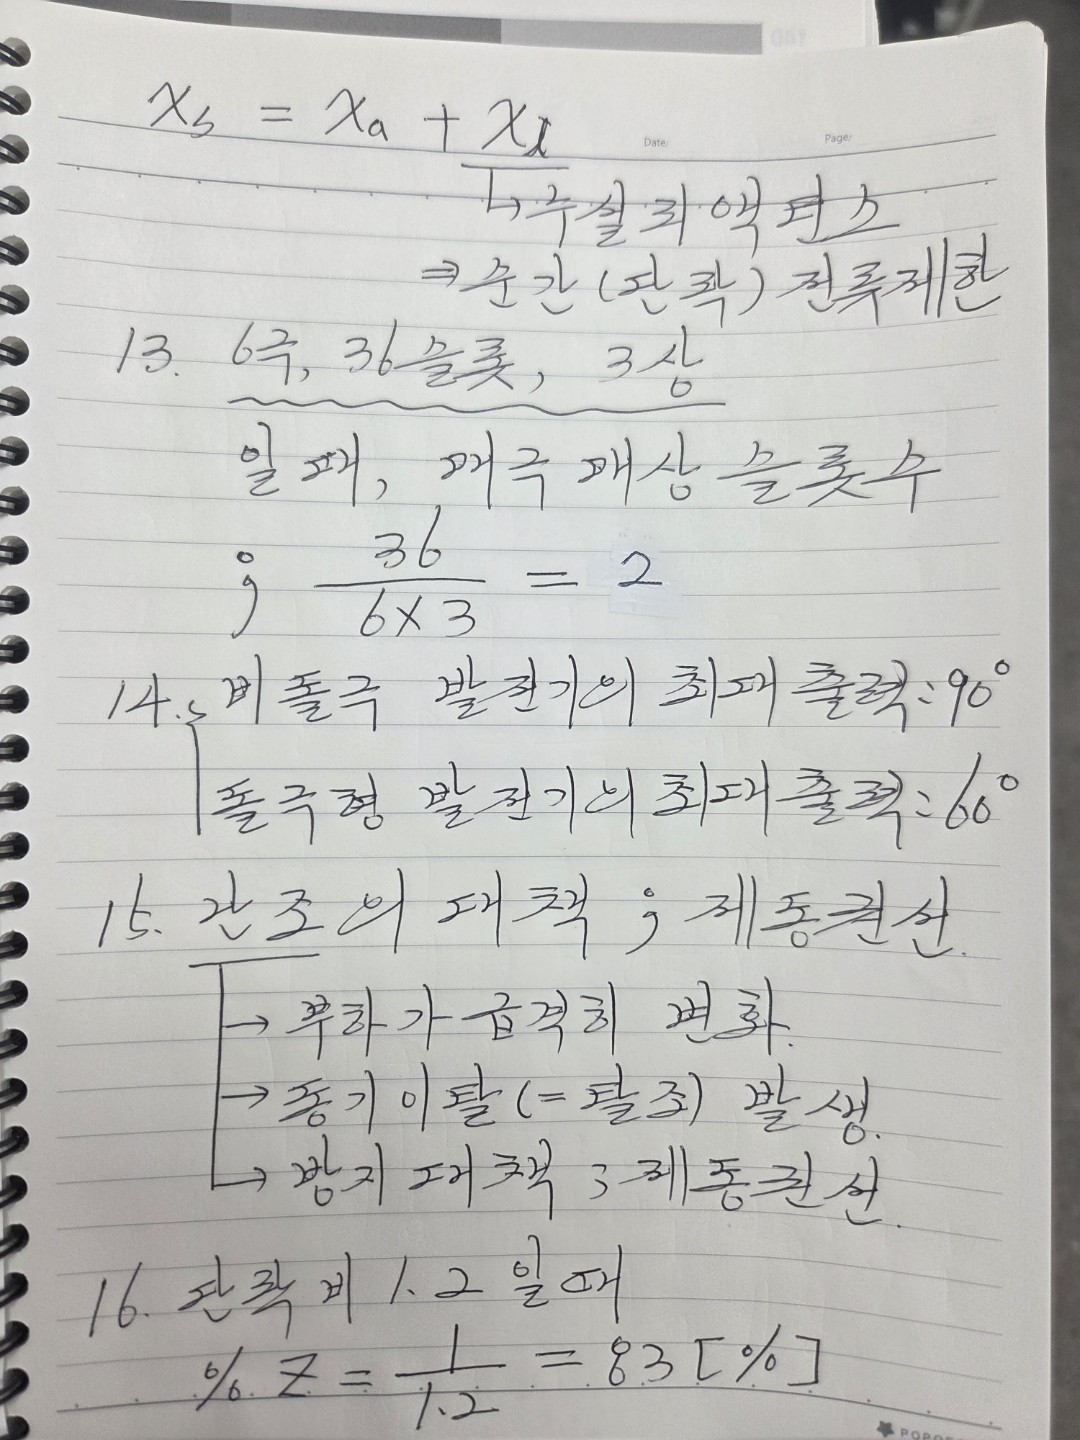 x_s = x_a + x_l
Date/ Page/
↳ 누설 리액턴스
⇒ 순간(단락) 전류제한
13. 6극, 36슬롯, 3상
일 때, 매극 매상 슬롯수
; 36/(6×3) = 2
14. 비돌극 발전기의 최대 출력 : 90°
돌극형 발전기의 최대 출력 : 60°
15. 난조의 대책 ; 제동권선.
→ 부하가 급격히 변화.
→ 동기이탈(=탈조) 발생.
→ 방지 대책 ; 제동권선.
16. 단락비 1.2 일 때
% Z = 1/1.2 = 83 [%]